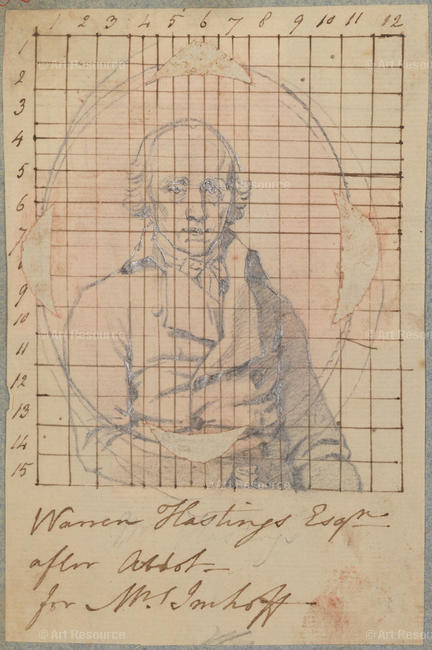 1 2 3 4 5 6 7 8 9 10 11 12
1
2
3
4
5
6
7
8
9
10
11
12
13
14
15
Warren Hastings Esqr
after Abbot
for Mr. Imhoff
© Art Resource
© Art Resource
© Art Resource
© Art Resource
© Art Resource
© Art Resource
© Art Resource
© Art Resource
© Art Resource